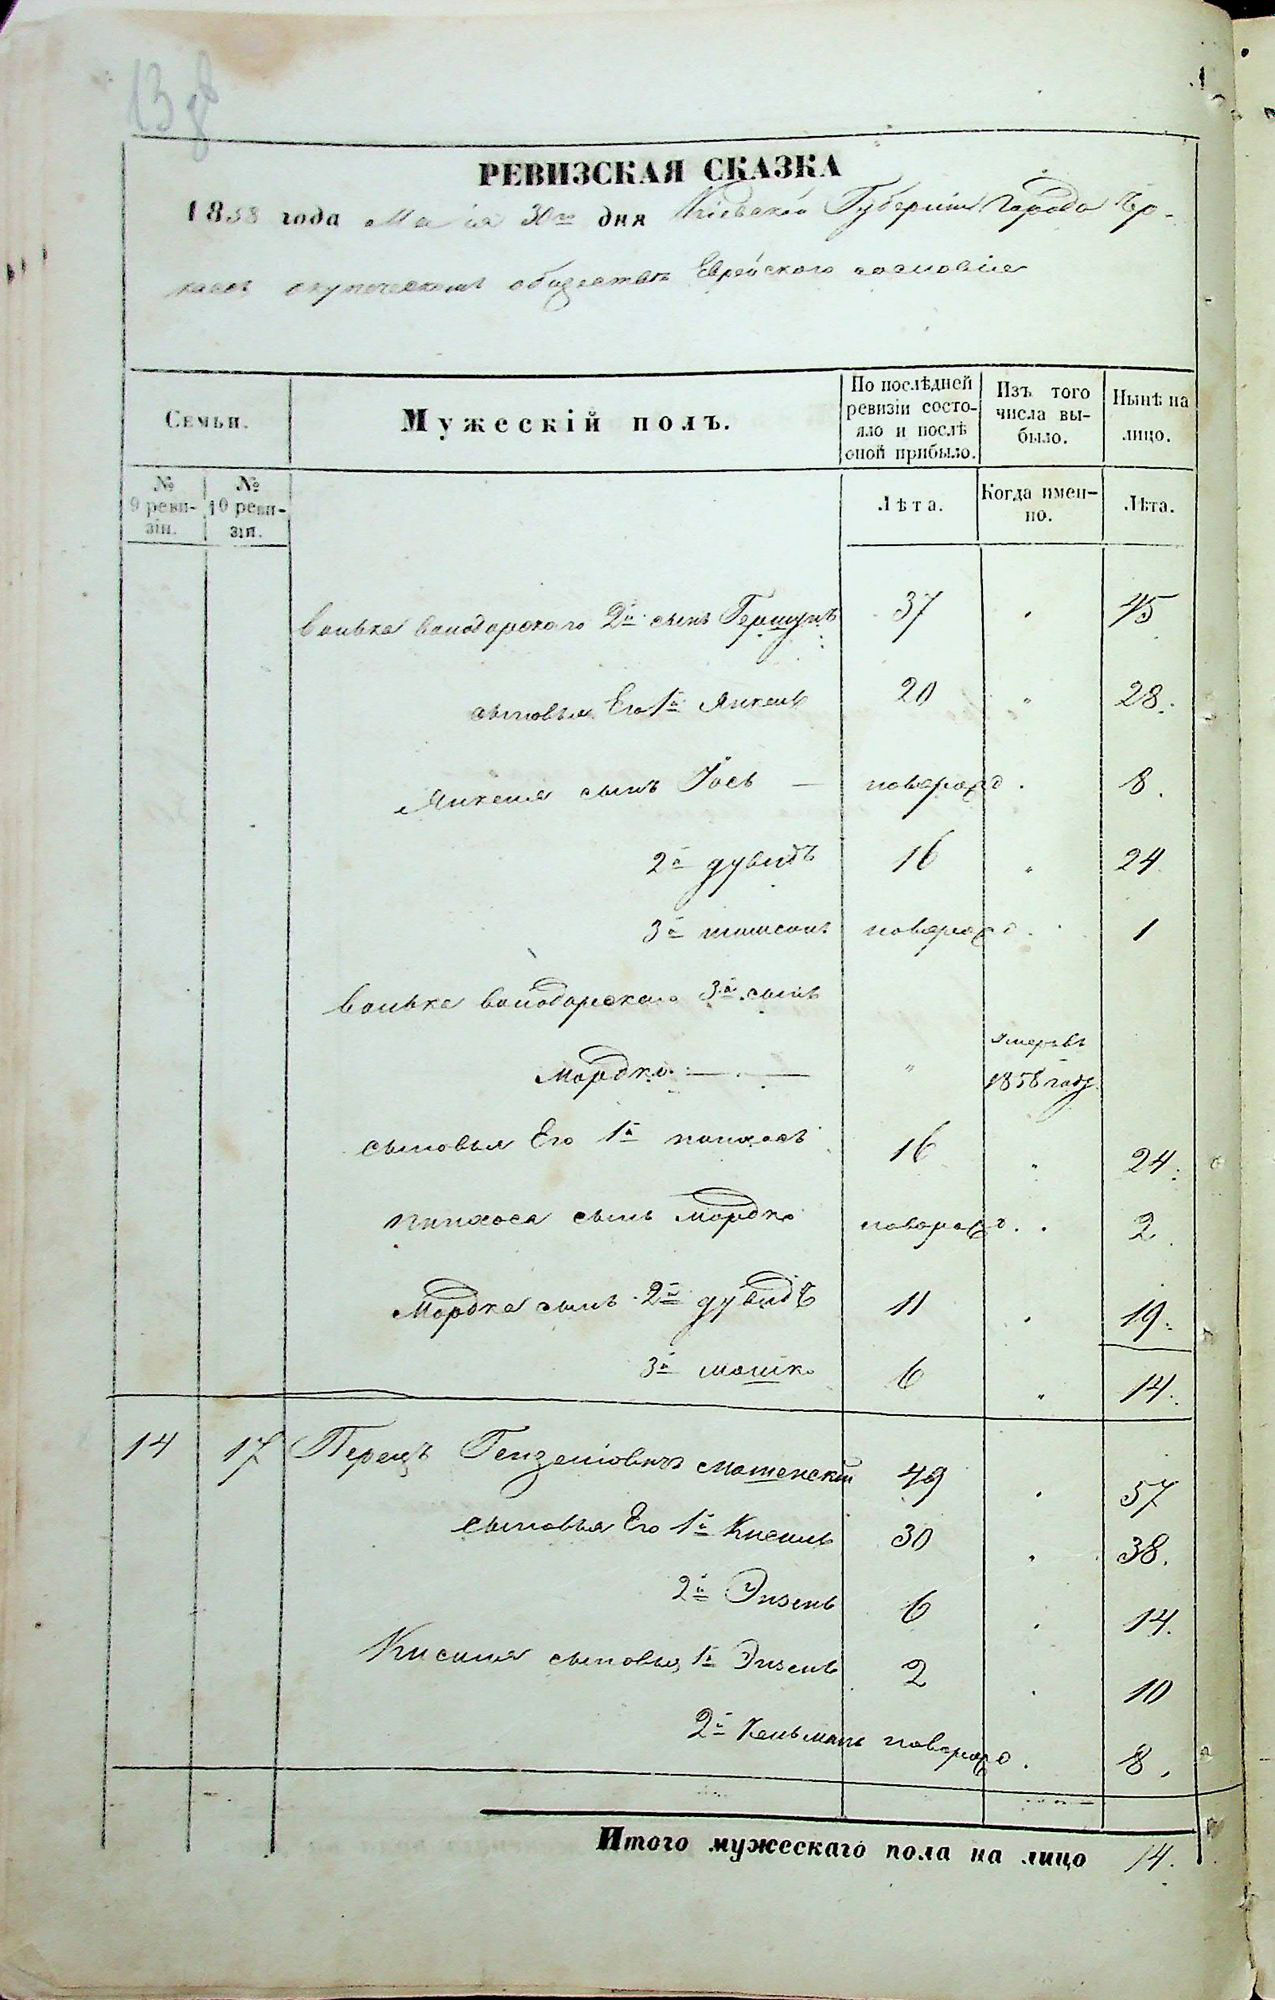 138
РЕВИЗСКАЯ СКАЗКА
1858 года Маія 30го дня Кіевской Губерніи Города Чер-
касъ купеческомъ обществѣ Еврейского сословія
Семьи.
Мужескій полъ.
По послѣдней ревизіи состо-яло и послѣ оной прибыло.
Изъ того числа вы-было.
Нынѣ на лицо.
№ 9 реви-зіи.
№ 10 реви-зіи.
Лѣта.
Когда имен-но.
Лѣта.
2й сынъ Гершунъ 37 45
сыновья Его 1й Янкель 20 28.
Янкеля сынъ Іось — новорожд. 8.
2й дувидъ 16 24
3й шимсонъ новорожд. 1
3й сынъ
Мордко — умеръ въ 1858 году
сыновья Его 1й пинхосъ 16 24.
пинхоса сынъ Мордко новорожд. 2
Мордка сынъ 2й дувидъ 11 19.
3й мошко 6 14.
14 17 Перецъ смотенскій 49 57
сыновья Его 1й Кисиль 30 38.
2й Эизень 6 14.
Кисиля сыновья 1й Эизень 2 10
2й Кельманъ новорожд. 8.
Итого мужескаго пола на лицо 14.